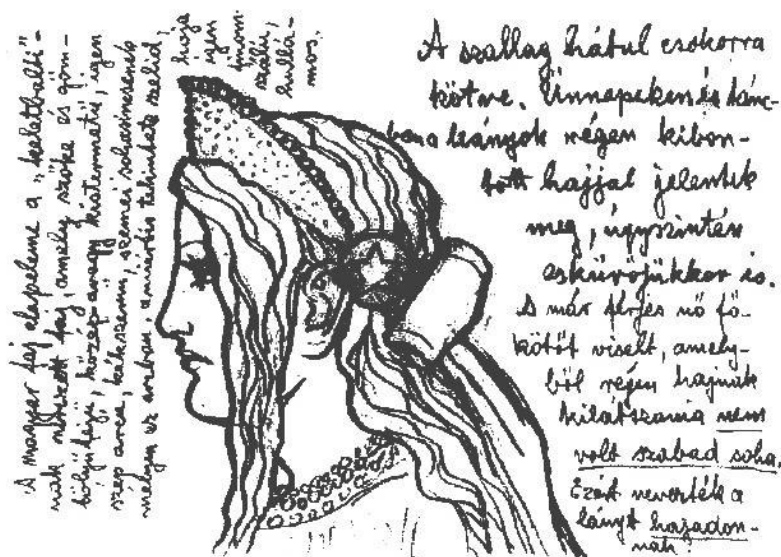 A magyar faj alapeleme a „keletbalti"-
nak nevezett faj, amely szőke és göm-
bölyűfejű, közép avagy kistermetű, igen
szép arca, kékszemű, szemei sohasincsenek
mélyen az arcban, amiértis tekintete szelid,
haja
igen
finom-
szálú,
hullá-
mos.
A szallag hátul csokorra
kötve. Ünnepeken és tánc-
ban a leányok régen kibon-
tott hajjal jelentek
meg, úgyszintén
esküvőjükkor is.
A már férjes nő fő-
kötőt viselt, amely-
ből régen hajnak
kilátszania nem
volt szabad soha.
Ezért nevezték a
lányt hajadon-
nak